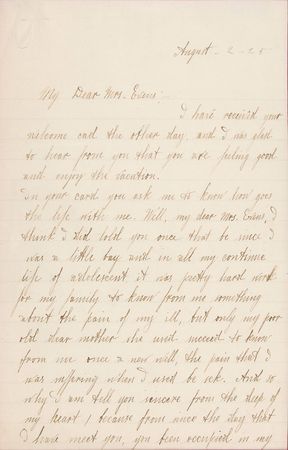 August - 2 - 25
My Dear Mrs. Evans:-
I have received your
welcome card the other day, and I was glad
to hear from you that you are feeling good
and enjoy the vacation.
In your card you ask me to know how goes
the life with me. Well, my dear Mrs. Evans, I
think I did told you once that be once I
was a little boy and in all my continue
life of adolescent it was pretty hard work
for my family to know from me something
about the pain of my ill, but only my poor
old dear mother she used to know
from me once a new well, the pain that I
was suffering when I used be sick. And so
why I am tell you sincere from the deep of
my heart, because from since the day that
I have meet you, you been occupied in my